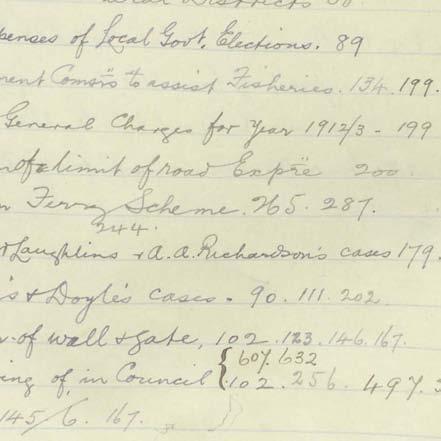 penses of Local Govt. Elections. 89
ment Comsrs to assist Fisheries. 134. 199.
General Charges for Year 1912/3 - 199
of a limit of road Exp're 200
Ferry Scheme. 265. 287.
244.
Laughlins & A. A. Richardson's cases 179.
's & Doyle's cases. 90. 111. 202
of wall & gate, 102. 123. 146. 167.
607. 632
ing of, in Council { 102. 256. 497.
145/6. 167.